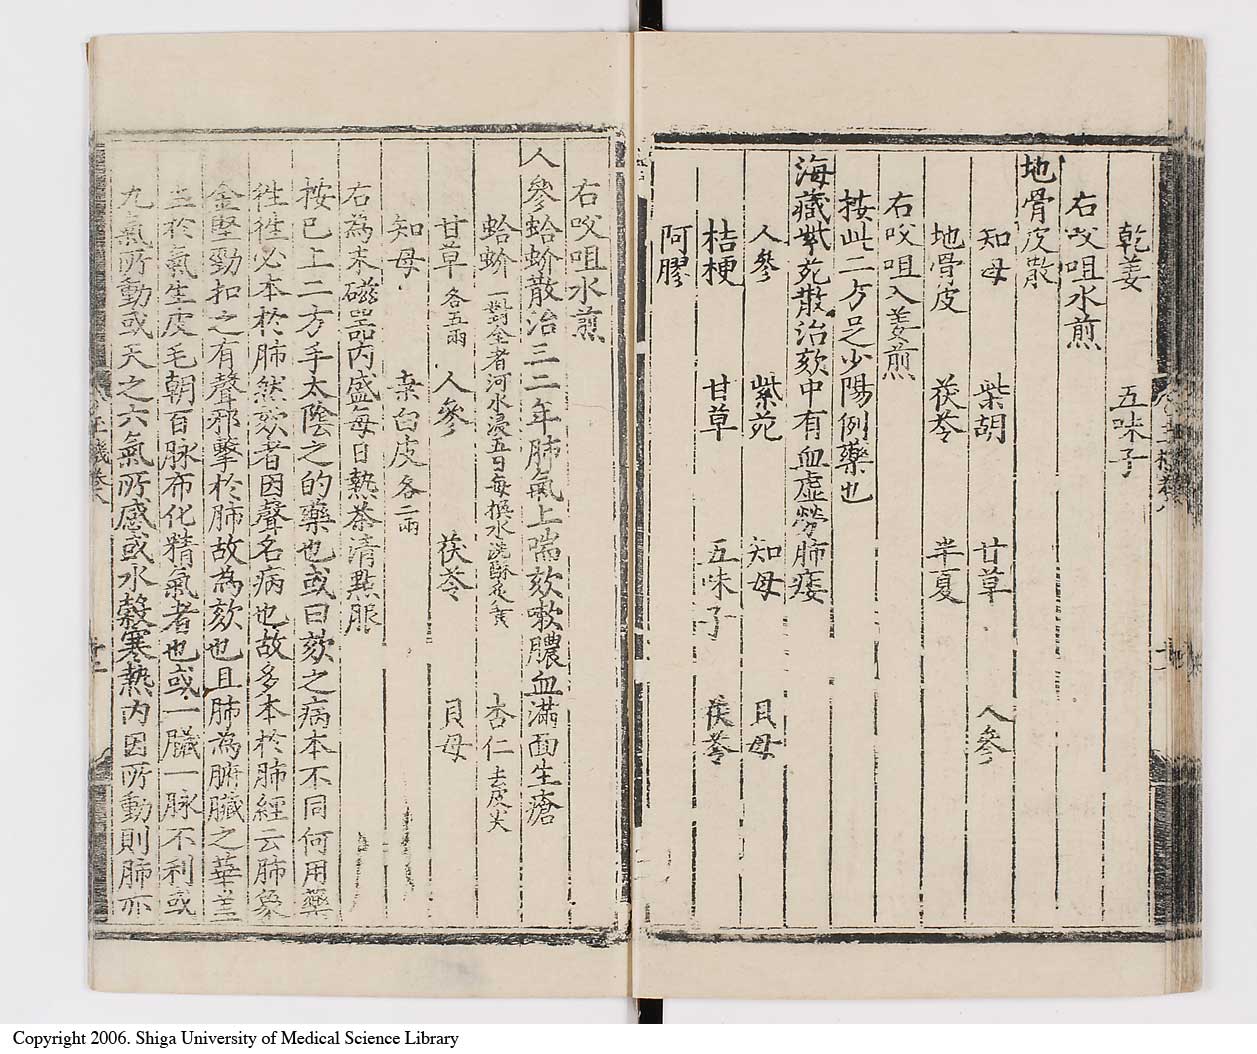 乾姜　五味子
右㕮咀水煎
地骨皮散
知母　柴胡　甘草　人參
地骨皮　茯苓　半夏
右㕮咀入姜煎
按此二方足少陽例藥也
海藏紫菀散治欬中有血虛勞肺痿
人參　紫菀　知母　貝母
桔梗　甘草　五味子　茯苓
阿膠
右㕮咀水煎
人參蛤蚧散治三二年肺氣上喘欬嗽膿血滿面生瘡
蛤蚧一對全者河水浸五日每換水洗　杏仁去皮尖
甘草各五兩　人參　茯苓　貝母
知母　桒白皮各二兩
右為末磁器內盛每日熱茶清點服
按已上二方手太陰之的藥也或曰欬之病本不同何用藥
徃徃必本於肺然欬者因聲名病也故多本於肺經云肺象
金堅勁扣之有聲邪擊於肺故為欬也且肺為腑臟之華盖
主於氣生皮毛朝百脉布化精氣者也或一臟一脉不利或
九氣所動或天之六氣所感或水穀寒熱內因所動則肺亦
Copyright 2006. Shiga University of Medical Science Library